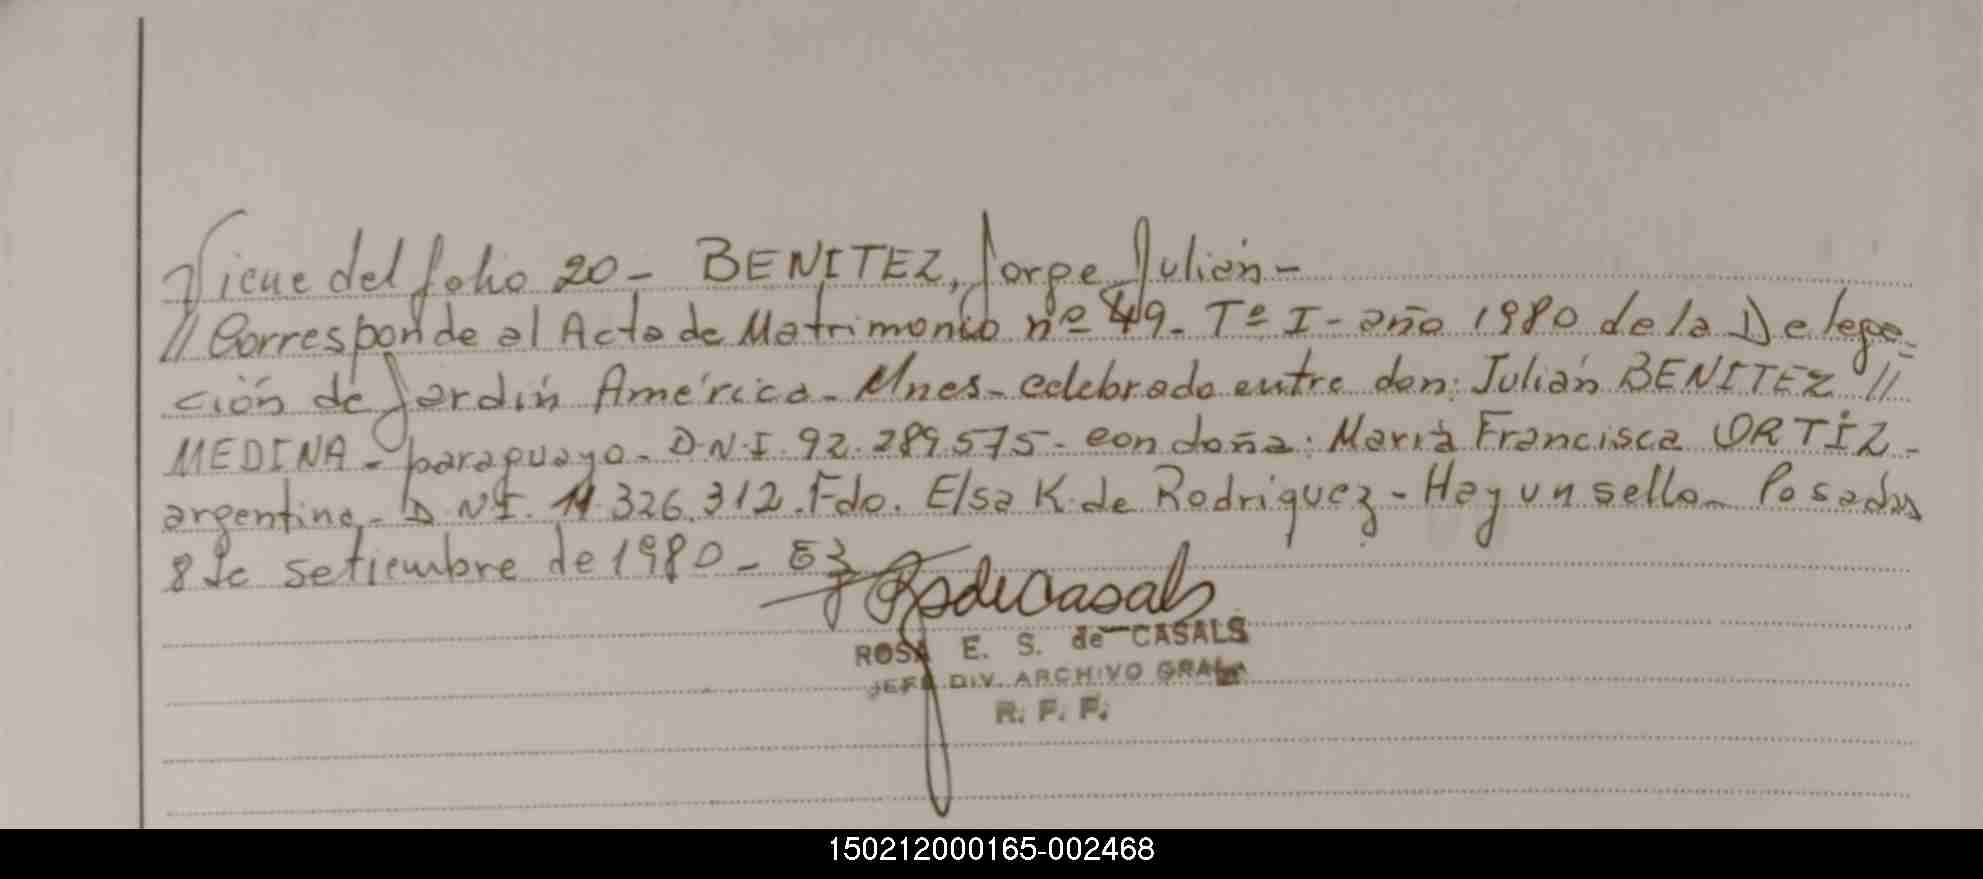 Viene del folio 20 - BENITEZ, Jorge Julián -
// Corresponde al Acta de Matrimonio nº 49 - Tº I - año 1980 de la Delega=
ción de Jardín América - Mnes - celebrado entre don: Julián BENITEZ //
MEDINA - paraguayo - D.N.I. 92.289.575 - con doña: María Francisca ORTÍZ -
argentina - D.N.I. 11.326.312. Fdo. Elsa K. de Rodriguez - Hay un sello - Posadas
8 de setiembre de 1980 -
ROSA E. S. de CASALS
JEFE DIV. ARCHIVO GRAL.
R. P. P.
150212000165-002468